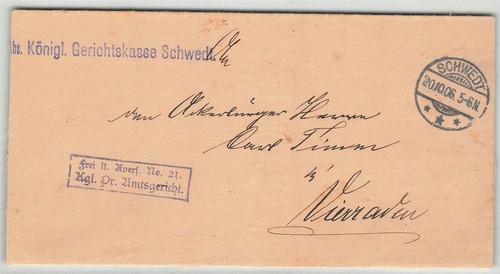 Abs. Königl. Gerichtskasse Schwedt.
An
den Ackerbürger Herrn
Carl Timm
in
Vierraden
SCHWEDT
20.10.06. 5-6N.
Frei lt. Avers. No. 21.
Kgl. Pr. Amtsgericht.